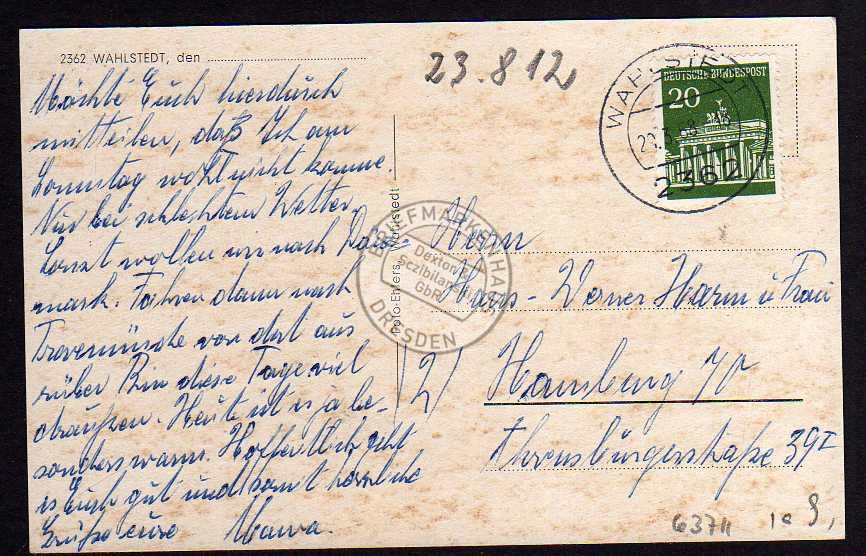 2362 WAHLSTEDT, den
23.8 12
Möchte Euch hierdurch
mitteilen, daß Ich am
Sonnstag wohl nicht komme.
Nur bei schlechten Wetter
Sonst wollen wir nach Däne-
mark. Fahren dann nach
Travemünde von dort aus
rüber Bin diese Tage viel
draußen. Heute ist es ja be-
sonders warm. Hoffentlich geht
es Euch gut und somit herzliche
Grüße eure Mama.
Foto-Ehlers, Wahlstedt
WAHLSTEDT
2362
DEUTSCHE BUNDESPOST
20
BRIEFMARKENHAUS
Dextor &
Sczibilanski
GbR
DRESDEN
Herrn
Hans-Werner Harm u Frau
2/ Hamburg 70
Ahrensburgerstraße 39I
63711